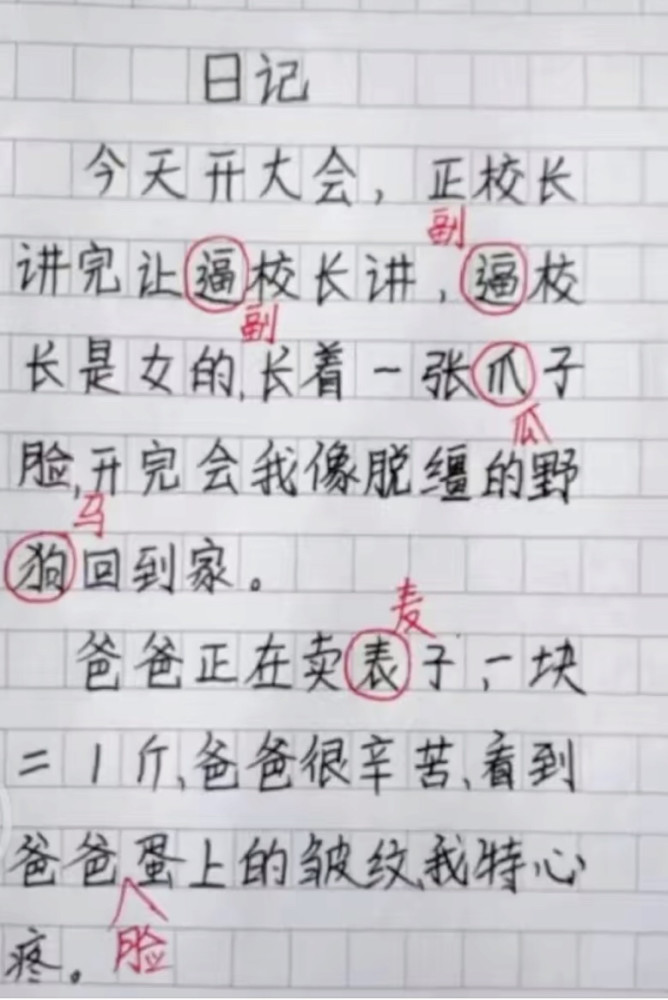 日记
今天开大会，正校长
副
讲完让逼校长讲，逼校
副
长是女的,长着一张爪子
瓜
脸,开完会我像脱缰的野
马
狗回到家。
麦
爸爸正在卖表子,一块
二1斤,爸爸很辛苦,看到
爸爸蛋上的皱纹,我特心
脸
疼。